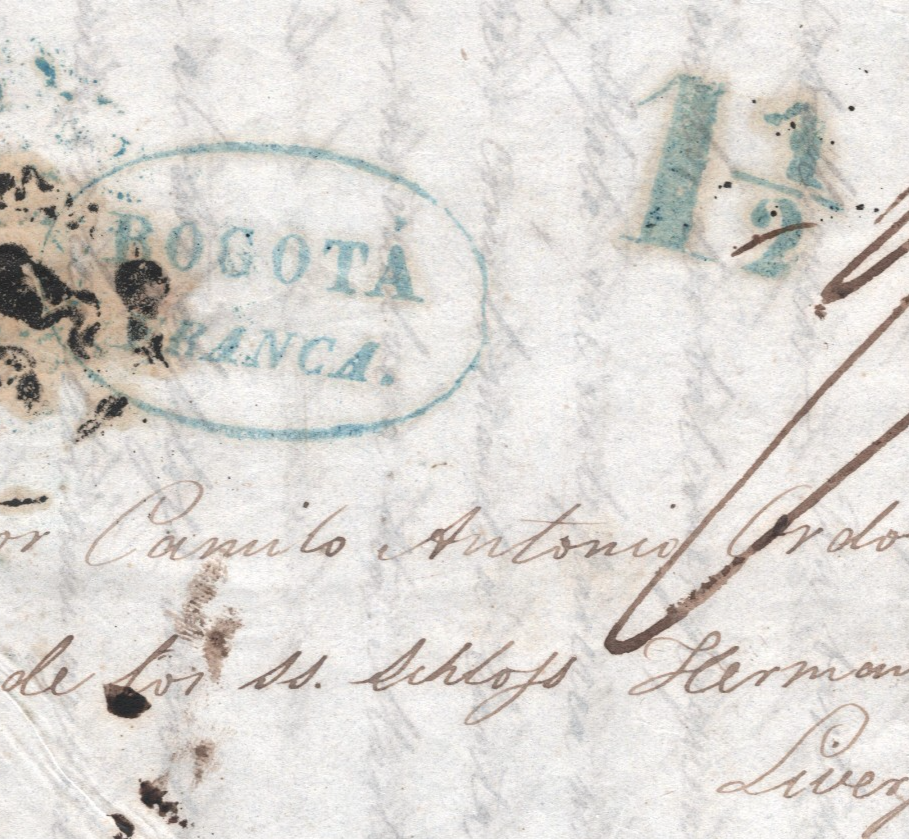 1 1/2
BOGOTÁ
FRANCA.
or Camilo Antonio Ordo
de los ss. Schloss Herman
Liverp